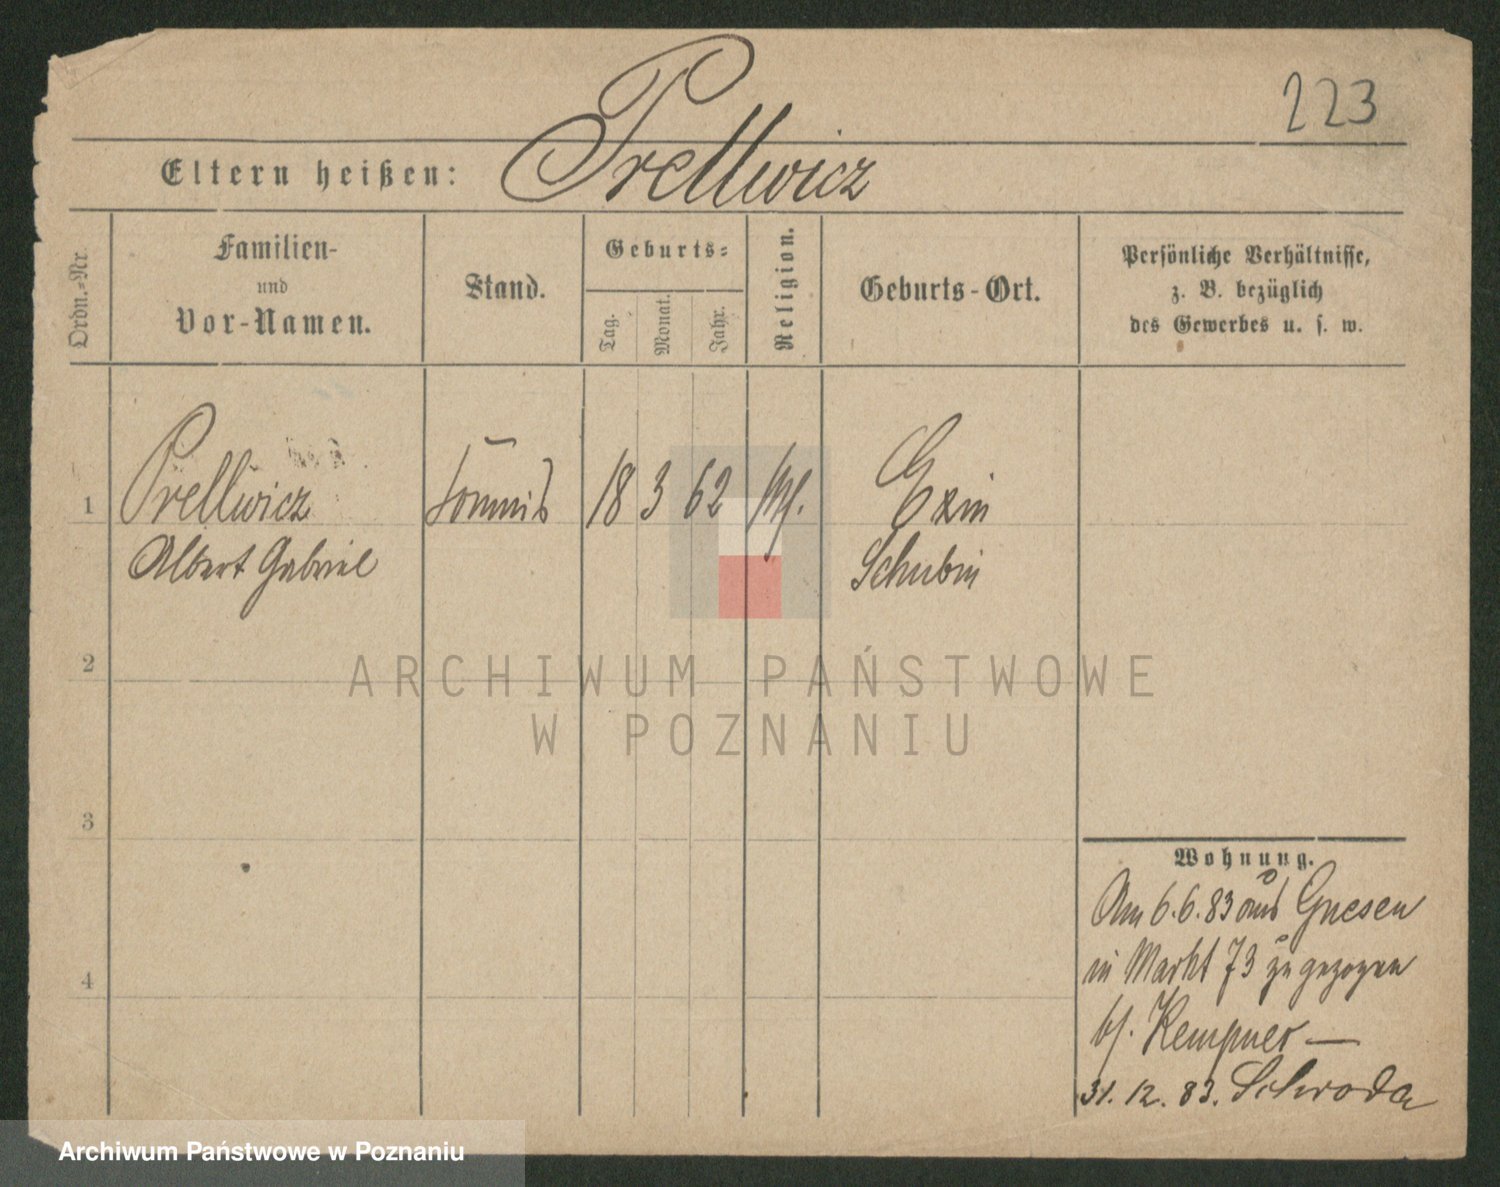 223
Eltern heißen: Prellwicz
Ordn.-Nr.
Familien-
und
Vor-Namen.
Stand.
Geburts-
Tag.
Monat.
Jahr.
Religion.
Geburts-Ort.
Persönliche Verhältnisse,
z. B. bezüglich
des Gewerbes u. s. w.
1 Prellwicz Commis 18 3 62 Exin
Albert Gabriel Schubin
2
3
4
Wohnung.
Am 6.6.83 aus Gnesen
in Markt 73 zugezogen
bf. Kempner —
31.12.83. Schroda
ARCHIWUM PAŃSTWOWE
W POZNANIU
Archiwum Państwowe w Poznaniu